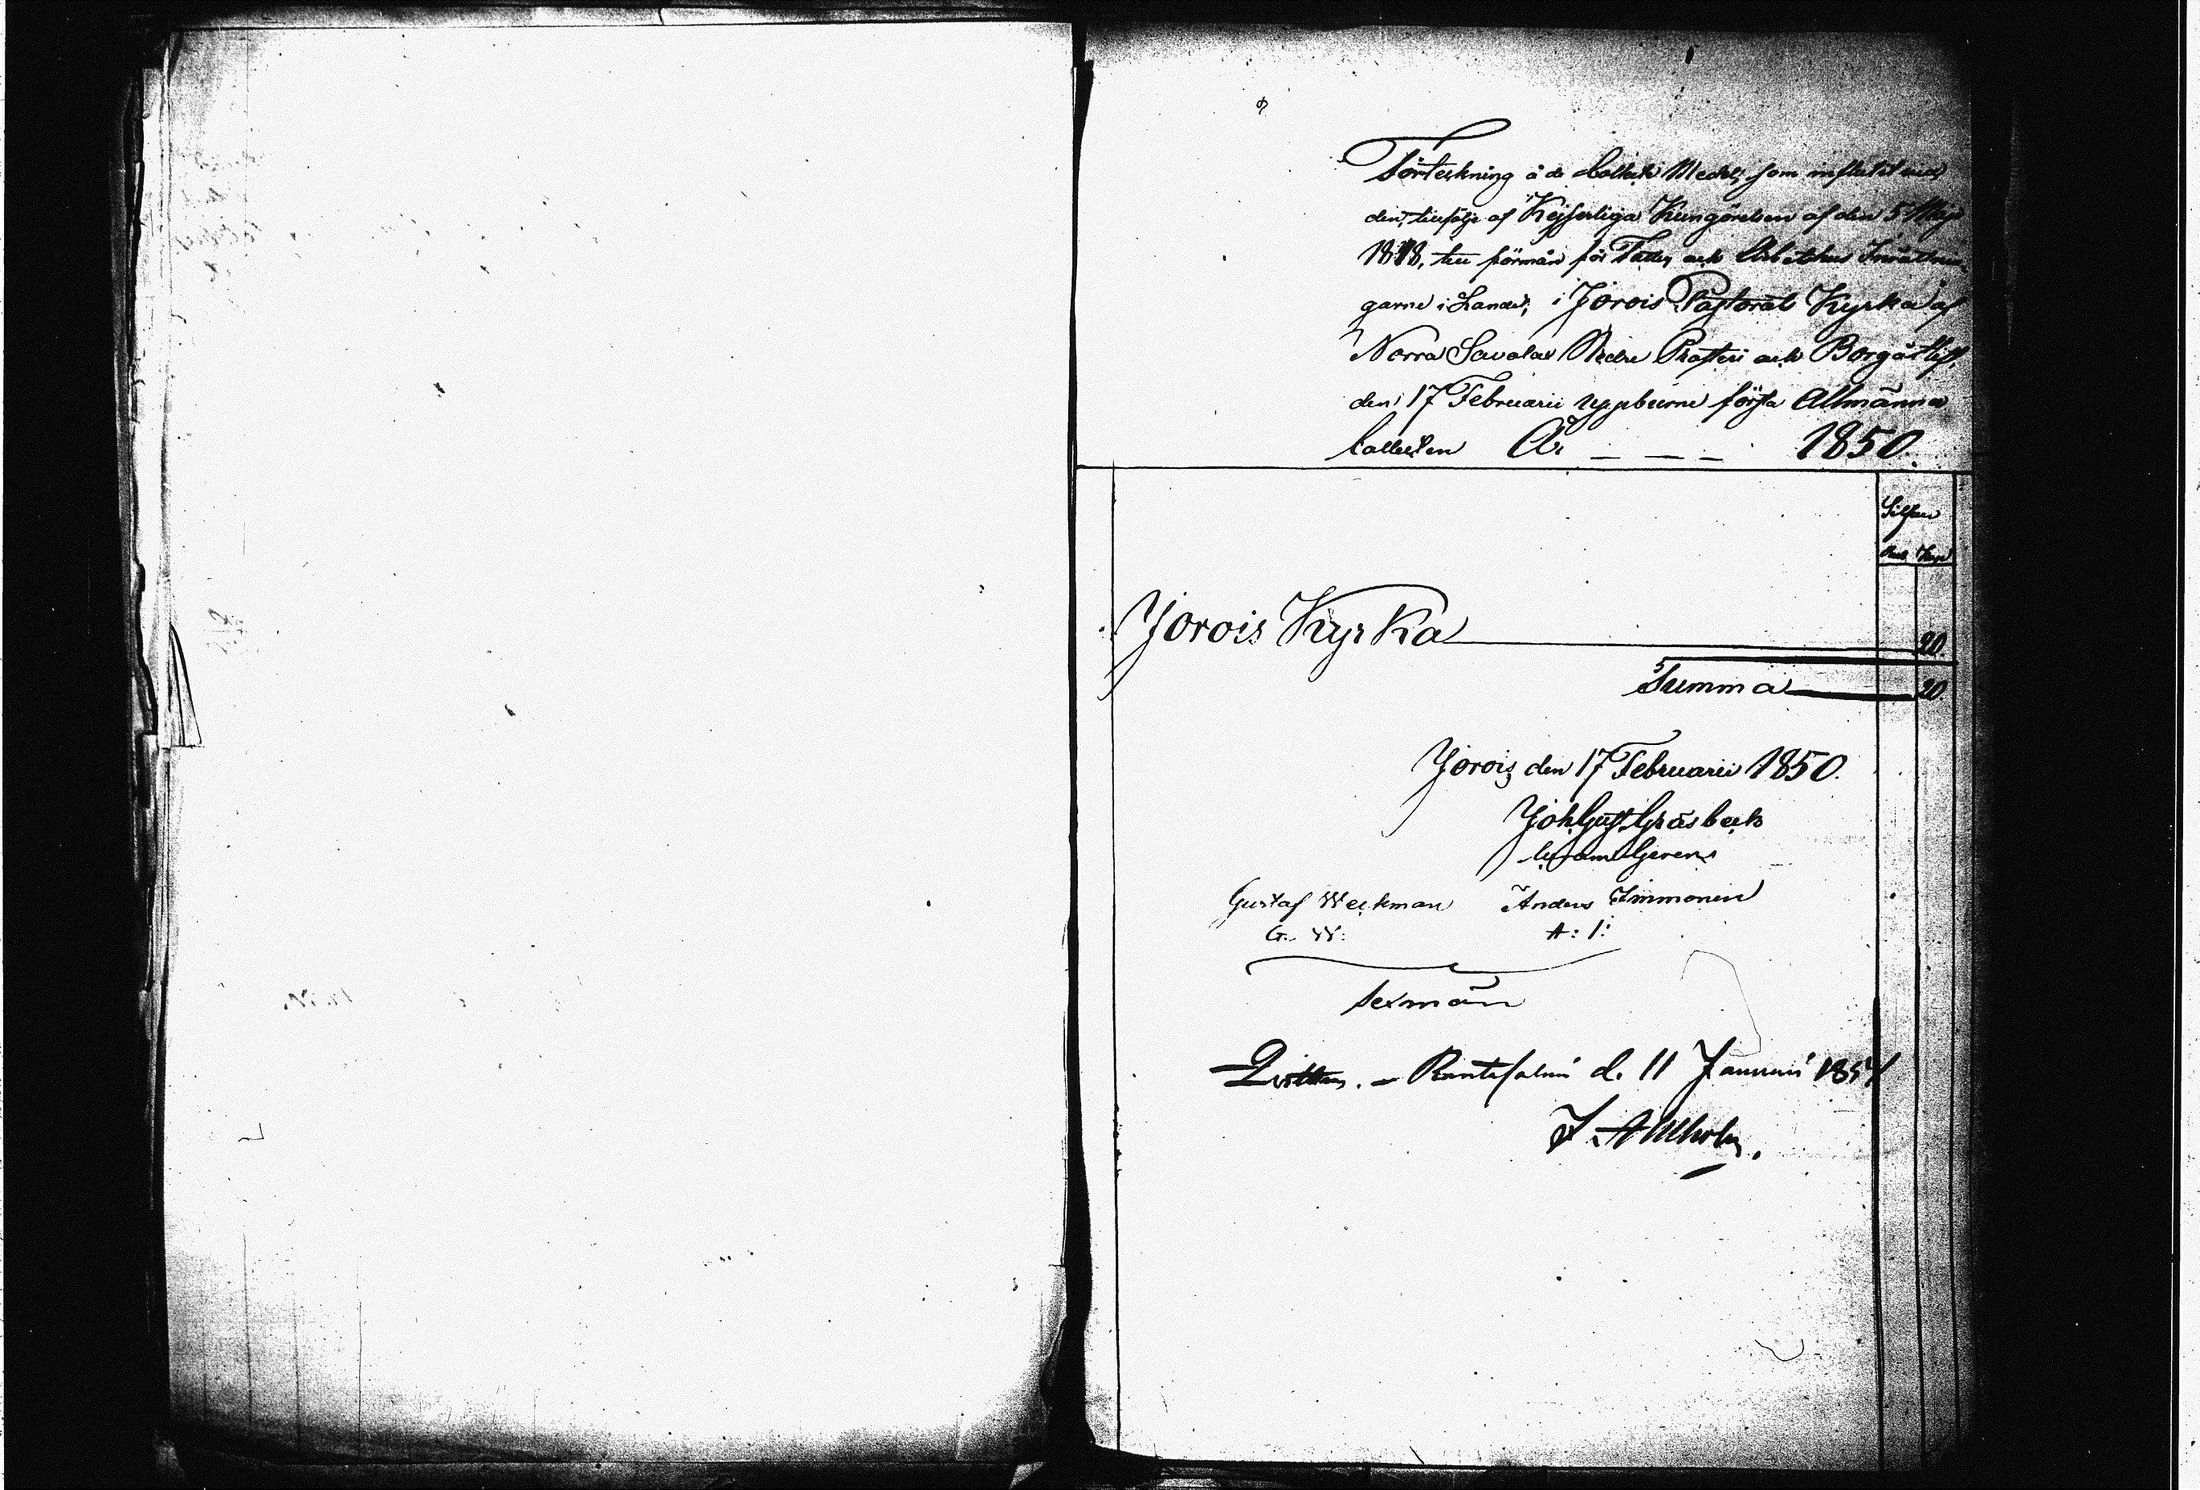 Förteckning å de Collect Medel, som influtit vid
den, till följe af Kejserliga Kungörelsen af den 5 Maji
1818, till förmån för Fattig och Arbetshus Inrättnin-
garne i Landet, i Jorois Pastorats Kyrka af
Norra Savolax Nedre Prosteri och Borgå Stift,
den 17 Februarii uppburne första Allmänna
Collecten År _ _ _ 1850.
Silfver
Rub. Kop.
Jorois Kyrka 20.
Summa 20.
Jorois den 17 Februarii 1850.
Joh. Gust. Gräsbeck
Gustaf Weckman Anders Immonen
G. W: A: I:
Sexmän
Qvitteras. – Rantasalmi d. 11 Januarii 1851